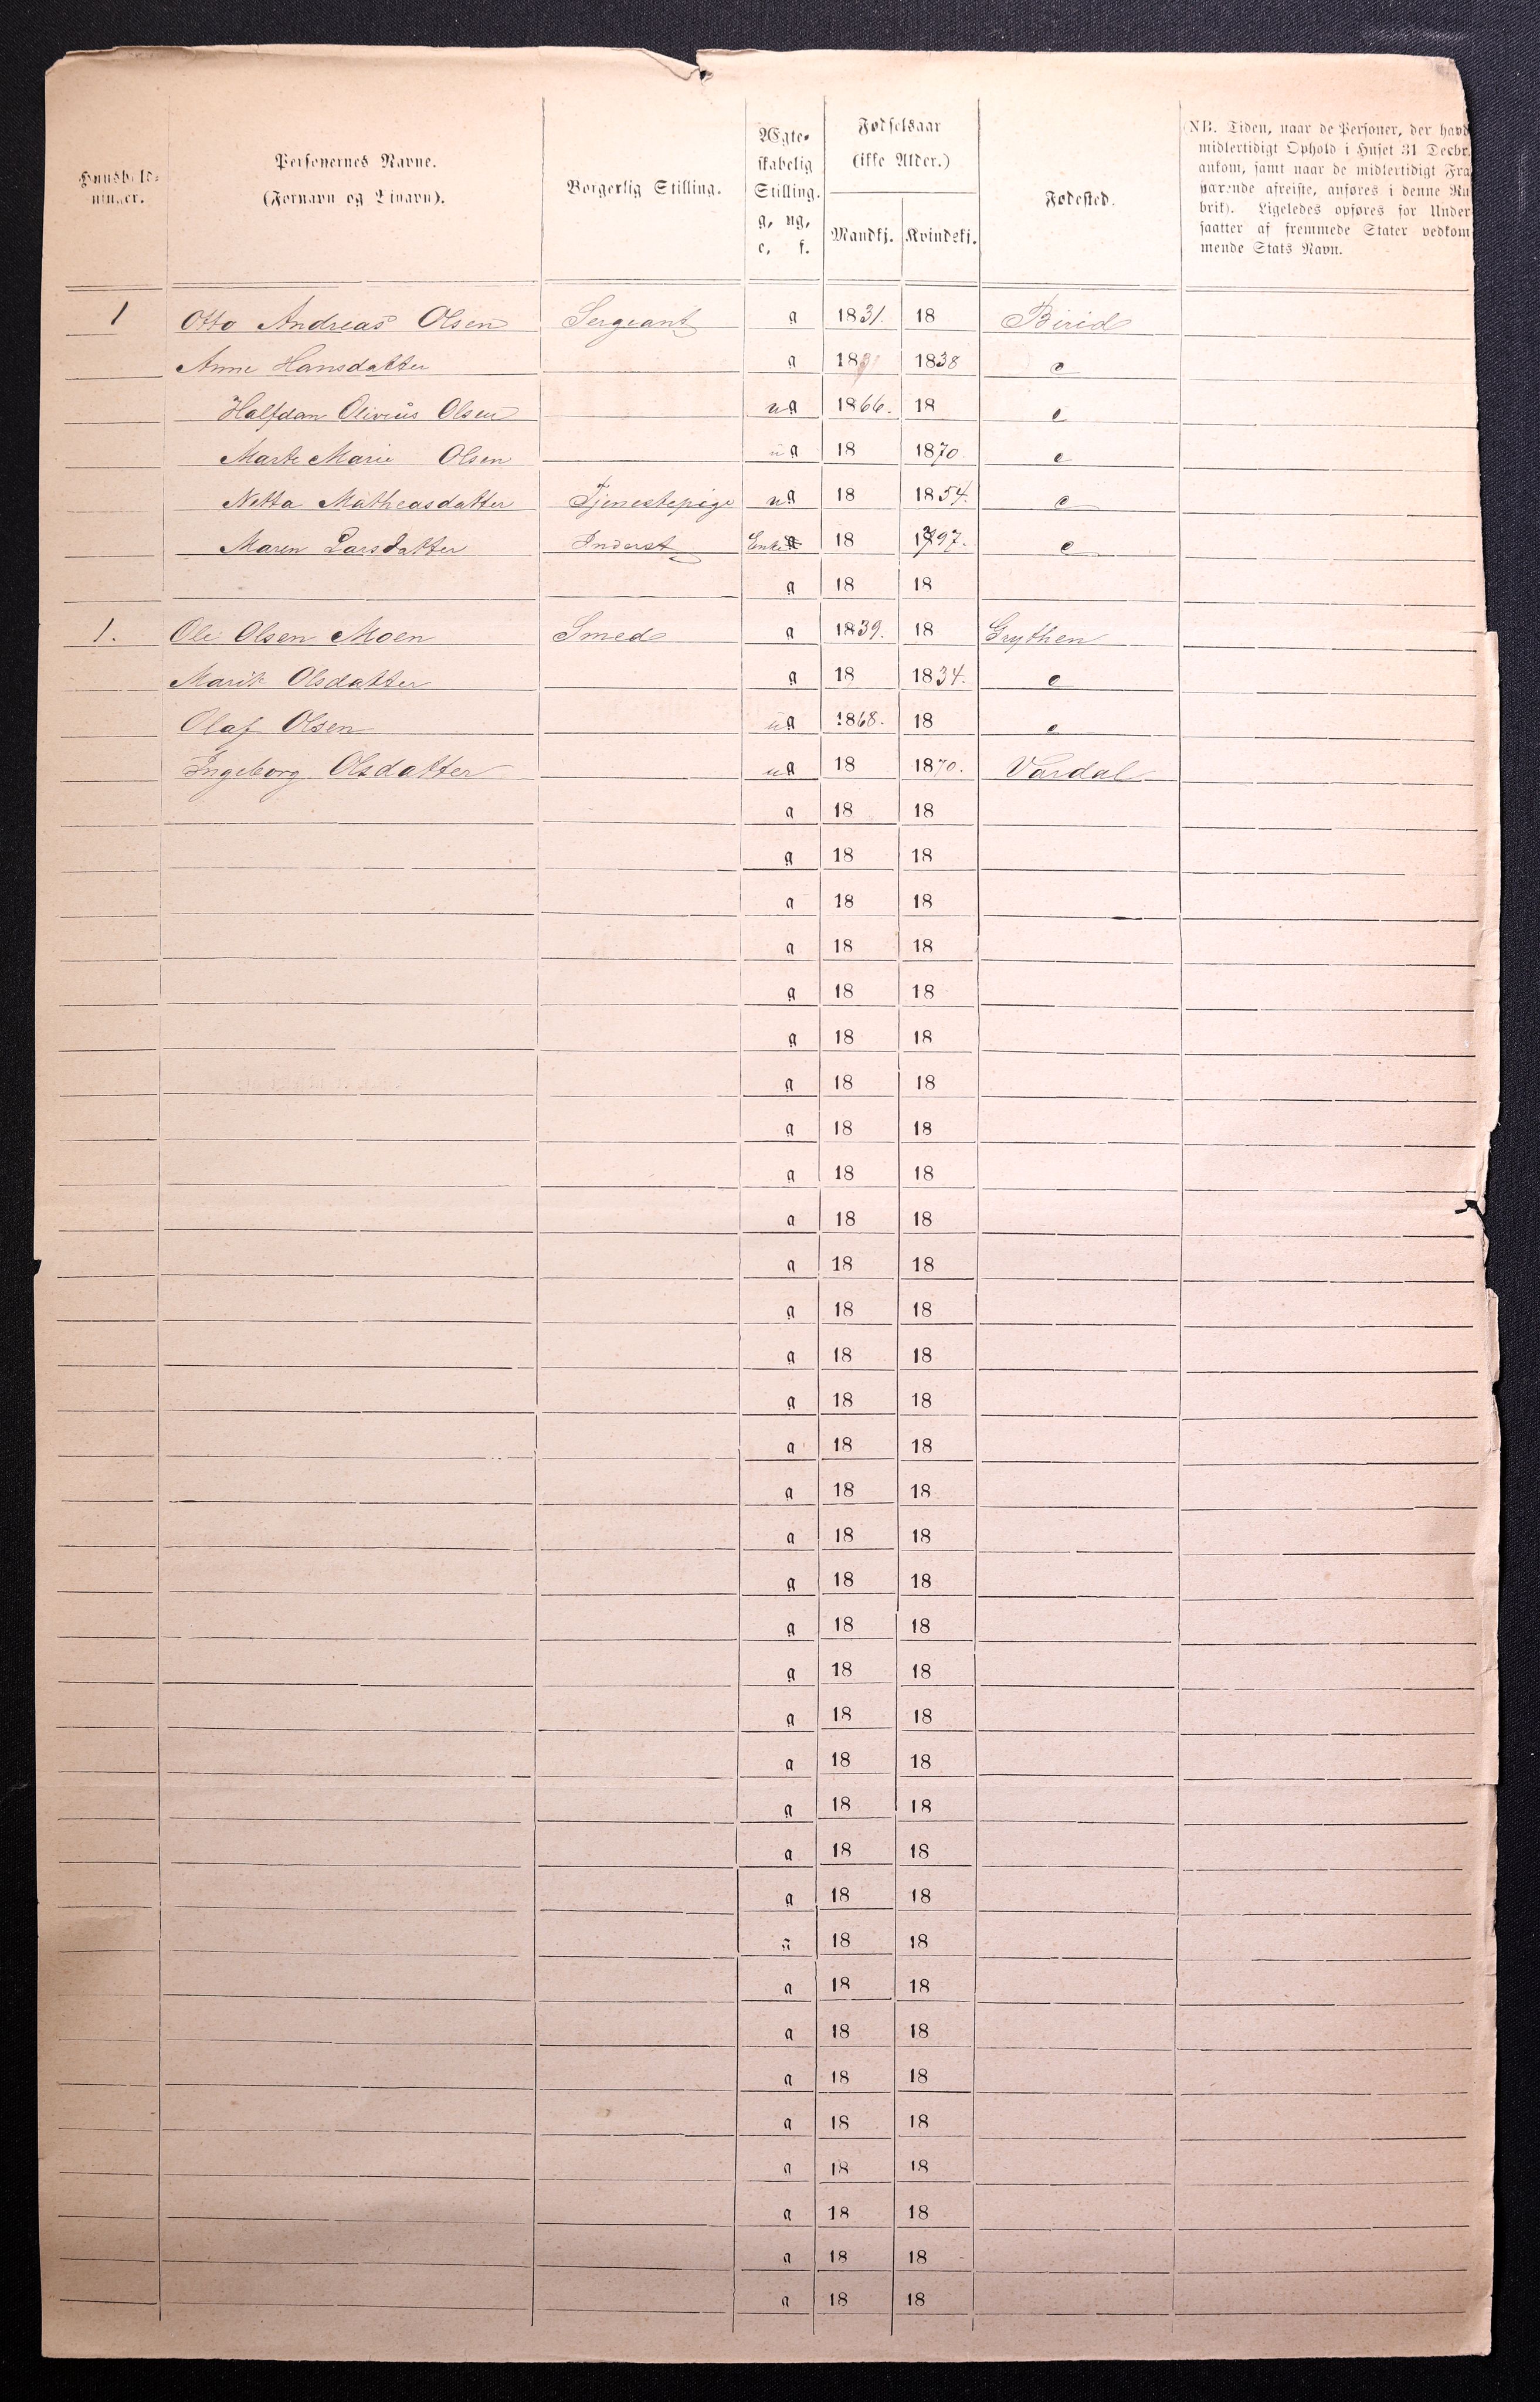 Huushold-
ninger.
Personernes Navne.
(Fornavn og Tilnavn).
Borgerlig Stilling.
Ægte-
skabelig
Stilling.
g, ug,
e, f.
Fødselsaar
(ikke Alder.)
Mandkj. Kvindekj.
Fødested.
(NB. Tiden, naar de Personer, der havd
midlertidigt Ophold i Huset 31 Decbr.
ankom, samt naar de midlertidigt Fra
værende afreiste, anføres i denne Ru
brik). Ligeledes opføres for Under
saatter af fremmede Stater vedkom
mende Stats Navn.
1 Otto Andreas Olsen Sergeant g 1831. 18 Birid
Anne Hansdatter g 18 1838 e
Halfdan Olivius Olsen ug 1866. 18 e
Marte Marie Olsen ug 18 1870. e
Netta Matheasdatter Tjenestepige ug 18 1854. e
Maren Larsdatter Inderst Enke g 18 1797. e
g 18 18
1. Ole Olsen Moen Smed g 1839. 18 Grythen
Marit Olsdatter g 18 1834. e
Olaf Olsen ug 1868. 18 e
Ingeborg Olsdatter ug 18 1870. Vardal
g 18 18
g 18 18
g 18 18
g 18 18
g 18 18
g 18 18
g 18 18
g 18 18
g 18 18
g 18 18
g 18 18
g 18 18
g 18 18
g 18 18
g 18 18
g 18 18
g 18 18
g 18 18
g 18 18
g 18 18
g 18 18
g 18 18
g 18 18
g 18 18
g 18 18
g 18 18
g 18 18
g 18 18
g 18 18
g 18 18
g 18 18
g 18 18
g 18 18
g 18 18